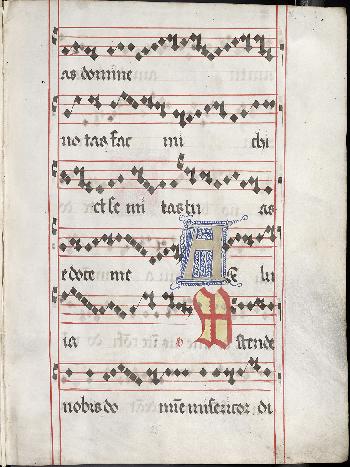 as domine
no tas fac mi chi
et se mi tas tu as
edoce me A lle lu
ia V Ostende
nobis do mie misericor di